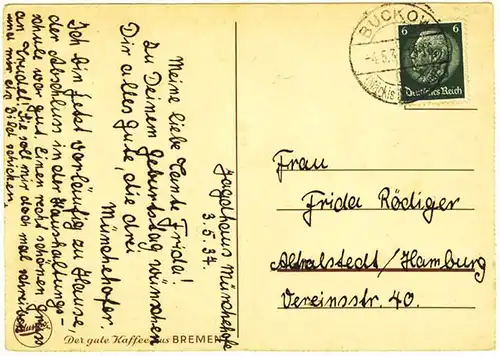 Jagdhaus Münchehofe
3.5.34.
Meine liebe Tante Frida!
Zu Deinem Geburtstag wünschen
Dir alles gute, die drei
Münchehofer.
Ich bin jetzt vorläufig zu Hause,
der Abschluss in der Haushaltungs-
schule war gut. Einen recht schönen Gruss
an Trudel! Sie soll mir doch mal schreiben
und mir ein Bild schicken.
BUCKOW
-4.5.3
(Märkis
6 6
Deutsches Reich
Frau
Frida Rödiger
Altralstedt/Hamburg
Vereinsstr. 40.
Der gute Kaffee aus BREMEN